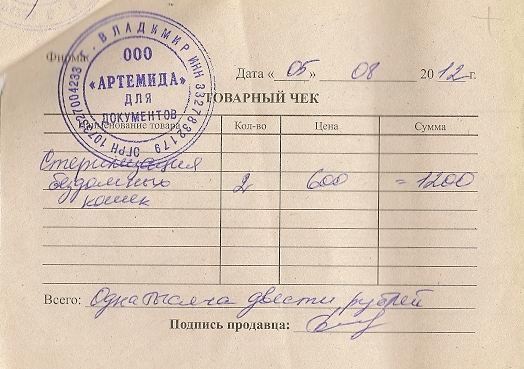 Фирма
г. ВЛАДИМИР ИНН 3327832179
ООО
«АРТЕМИДА»
ДЛЯ
ДОКУМЕНТОВ
ОГРН
Дата « 05 » 08 2012 г.
ТОВАРНЫЙ ЧЕК
Наименование товара Кол-во Цена Сумма
Стерилизация
бездомных 2 600 = 1200
кошек
Всего: Одна тысяча двести рублей
Подпись продавца: